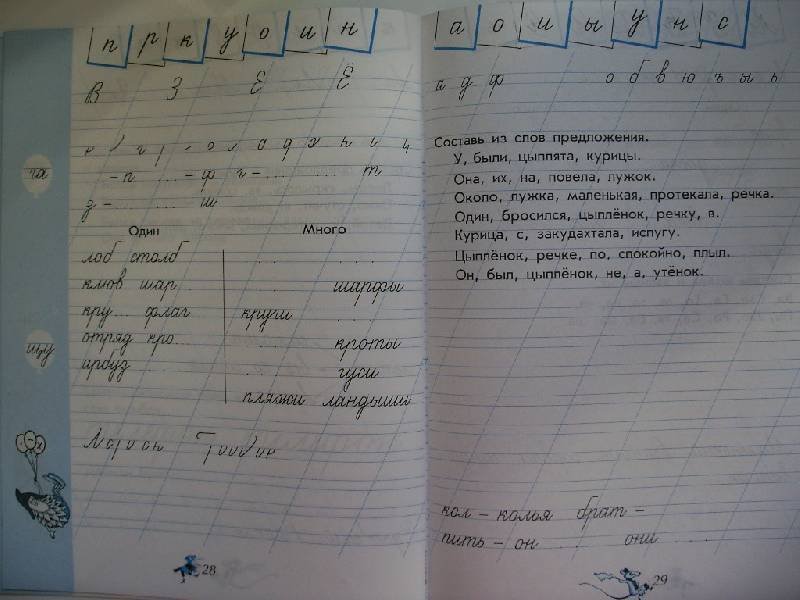 п р к у о и н
В З Е Ё
г о л а д х
-п ... -ф г- ... т
з- ... ш
Один Много
лоб столб
клюв шар... шарфы
кру... флаг круги
отряд кро... кроты
арбуз гуси
пляжи ландыши
28
чк
щу
а о и ы у н с
а д ф о б в ю ъ ы ь
Составь из слов предложения.
У, были, цыплята, курицы.
Она, их, на, повела, лужок.
Около, лужка, маленькая, протекала, речка.
Один, бросился, цыплёнок, речку, в.
Курица, с, закудахтала, испугу.
Цыплёнок, речке, по, спокойно, плыл.
Он, был, цыплёнок, не, а, утёнок.
кол – колья брат –
пить – он ... они ...
29